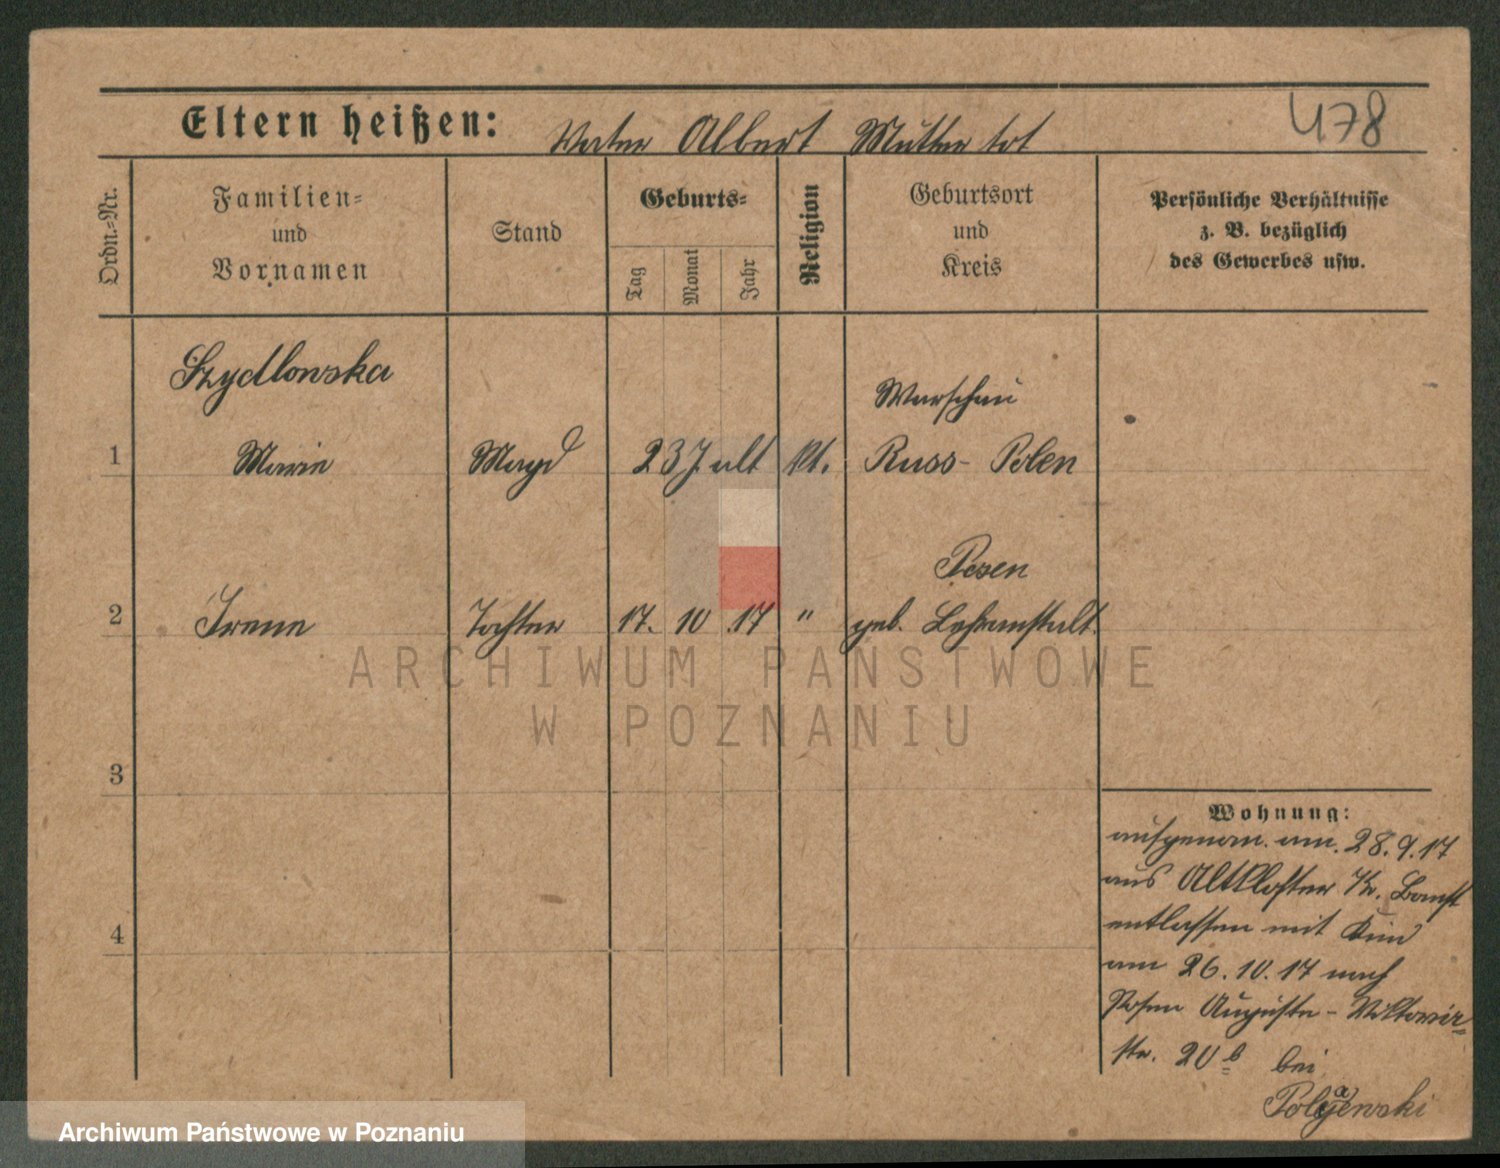 Eltern heißen: Vater Albert Mutter tot
478
Ordn.-Nr.
Familien-
und
Vornamen
Stand
Geburts-
Tag
Monat
Jahr
Religion
Geburtsort
und
Kreis
Persönliche Verhältnisse
z. B. bezüglich
des Gewerbes usw.
Szydlowska
Warschau
1 Marie Magd 23 J. alt kt. Russ- Polen
Posen
2 Irene Tochter 17. 10 .17 " geb. Lehranstalt.
ARCHIWUM PAŃSTWOWE
W POZNANIU
3
4
Wohnung:
aufgenom. am. 28.9.17
aus Altkloster Kr. Bomst
entlassen mit Kind
am 26.10.17 nach
Posen Auguste-Viktoria-
str. 20 b bei
Archiwum Państwowe w Poznaniu